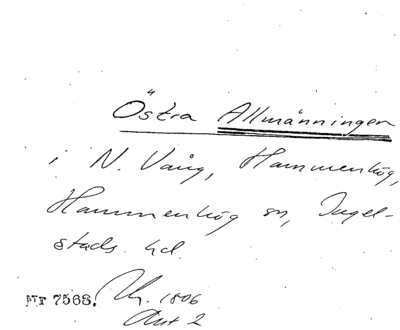 Östra Allmänningen
i N. Vång, Hammenhög,
Hammenhög sn, Ingel-
stads hd.
Nr 7568. Uh. 1806
Akt 2